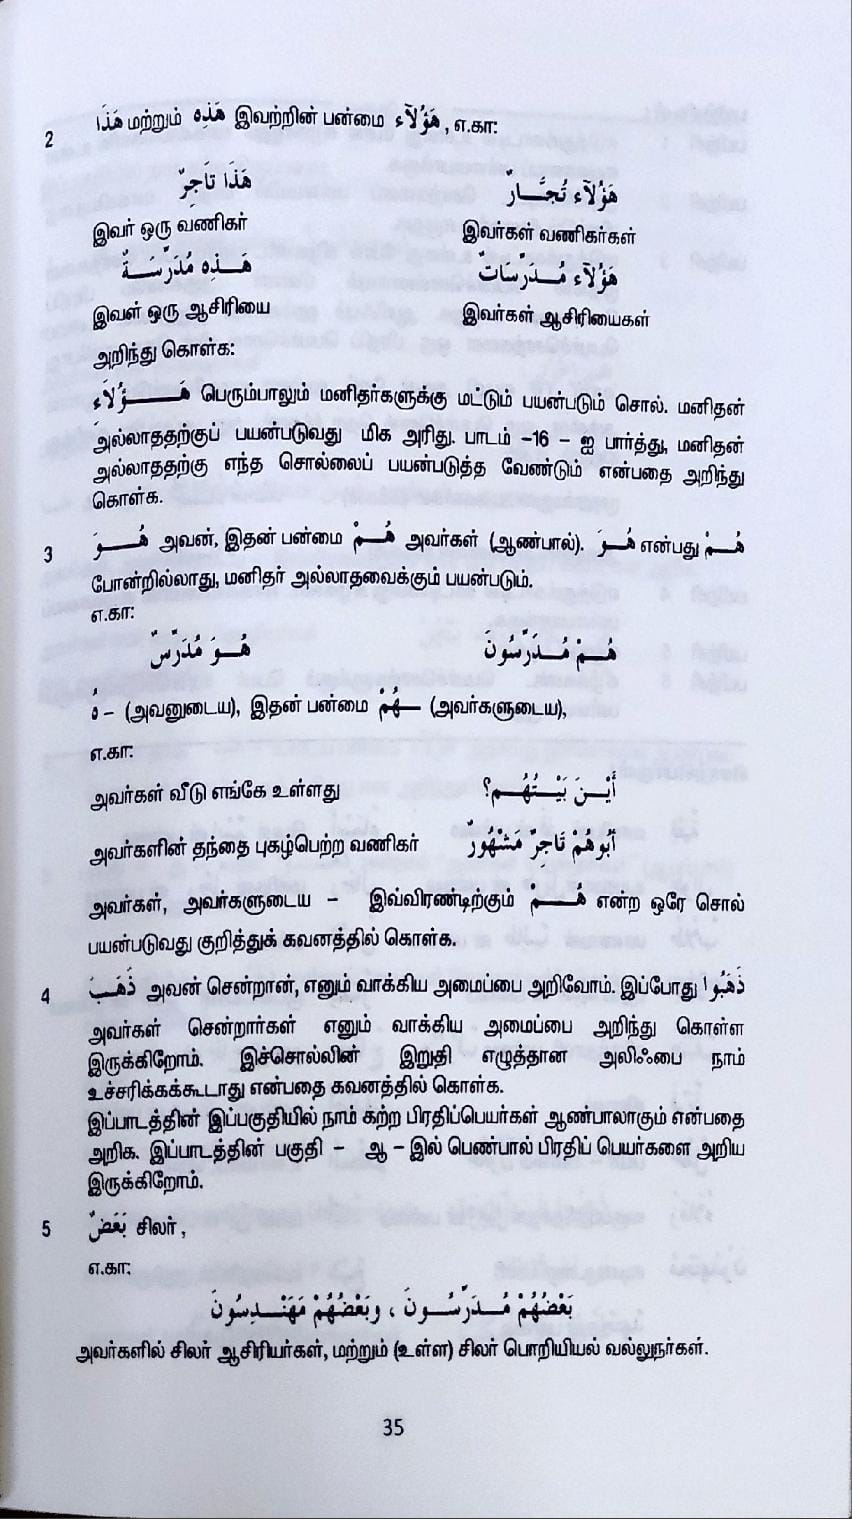 2 هَذَا மற்றும் هَذِهِ இவற்றின் பன்மை هَؤُلَاءِ , எ.கா:
هَذَا تَاجِرٌ هَؤُلَاءِ تُجَّارٌ
இவர் ஒரு வணிகர் இவர்கள் வணிகர்கள்
هَذِهِ مُدَرِّسَةٌ هَؤُلَاءِ مُدَرِّسَاتٌ
இவள் ஒரு ஆசிரியை இவர்கள் ஆசிரியைகள்
அறிந்து கொள்க:
هَؤُلَاءِ பெரும்பாலும் மனிதர்களுக்கு மட்டும் பயன்படும் சொல். மனிதன்
அல்லாததற்குப் பயன்படுவது மிக அரிது. பாடம் –16 – ஐ பார்த்து, மனிதன்
அல்லாததற்கு எந்த சொல்லைப் பயன்படுத்த வேண்டும் என்பதை அறிந்து
கொள்க.
3 هُوَ அவன், இதன் பன்மை هُمْ அவர்கள் (ஆண்பால்). هُوَ என்பது هُمْ
போன்றில்லாது, மனிதர் அல்லாதவைக்கும் பயன்படும்.
எ.கா:
هُوَ مُدَرِّسٌ هُمْ مُدَرِّسُونَ
هُ – (அவனுடைய), இதன் பன்மை ـهُمْ (அவர்களுடைய),
எ.கா:
அவர்கள் வீடு எங்கே உள்ளது أَيْنَ بَيْتُهُم؟
அவர்களின் தந்தை புகழ்பெற்ற வணிகர் أَبُوهُمْ تَاجِرٌ مَشْهُورٌ
அவர்கள், அவர்களுடைய – இவ்விரண்டிற்கும் هُم என்ற ஒரே சொல்
பயன்படுவது குறித்துக் கவனத்தில் கொள்க.
4 ذَهَبَ அவன் சென்றான், எனும் வாக்கிய அமைப்பை அறிவோம். இப்போது ذَهَبُوا
அவர்கள் சென்றார்கள் எனும் வாக்கிய அமைப்பை அறிந்து கொள்ள
இருக்கிறோம். இச்சொல்லின் இறுதி எழுத்தான அலிஃபை நாம்
உச்சரிக்கக்கூடாது என்பதை கவனத்தில் கொள்க.
இப்பாடத்தின் இப்பகுதியில் நாம் கற்ற பிரதிப்பெயர்கள் ஆண்பாலாகும் என்பதை
அறிக. இப்பாடத்தின் பகுதி – ஆ – இல் பெண்பால் பிரதிப் பெயர்களை அறிய
இருக்கிறோம்.
5 بَعْضٌ சிலர் ,
எ.கா:
بَعْضُهُمْ مُدَرِّسُونَ ، وبَعْضُهُمْ مَهَنْدِسُونَ
அவர்களில் சிலர் ஆசிரியர்கள், மற்றும் (உள்ள) சிலர் பொறியியல் வல்லுநர்கள்.
35